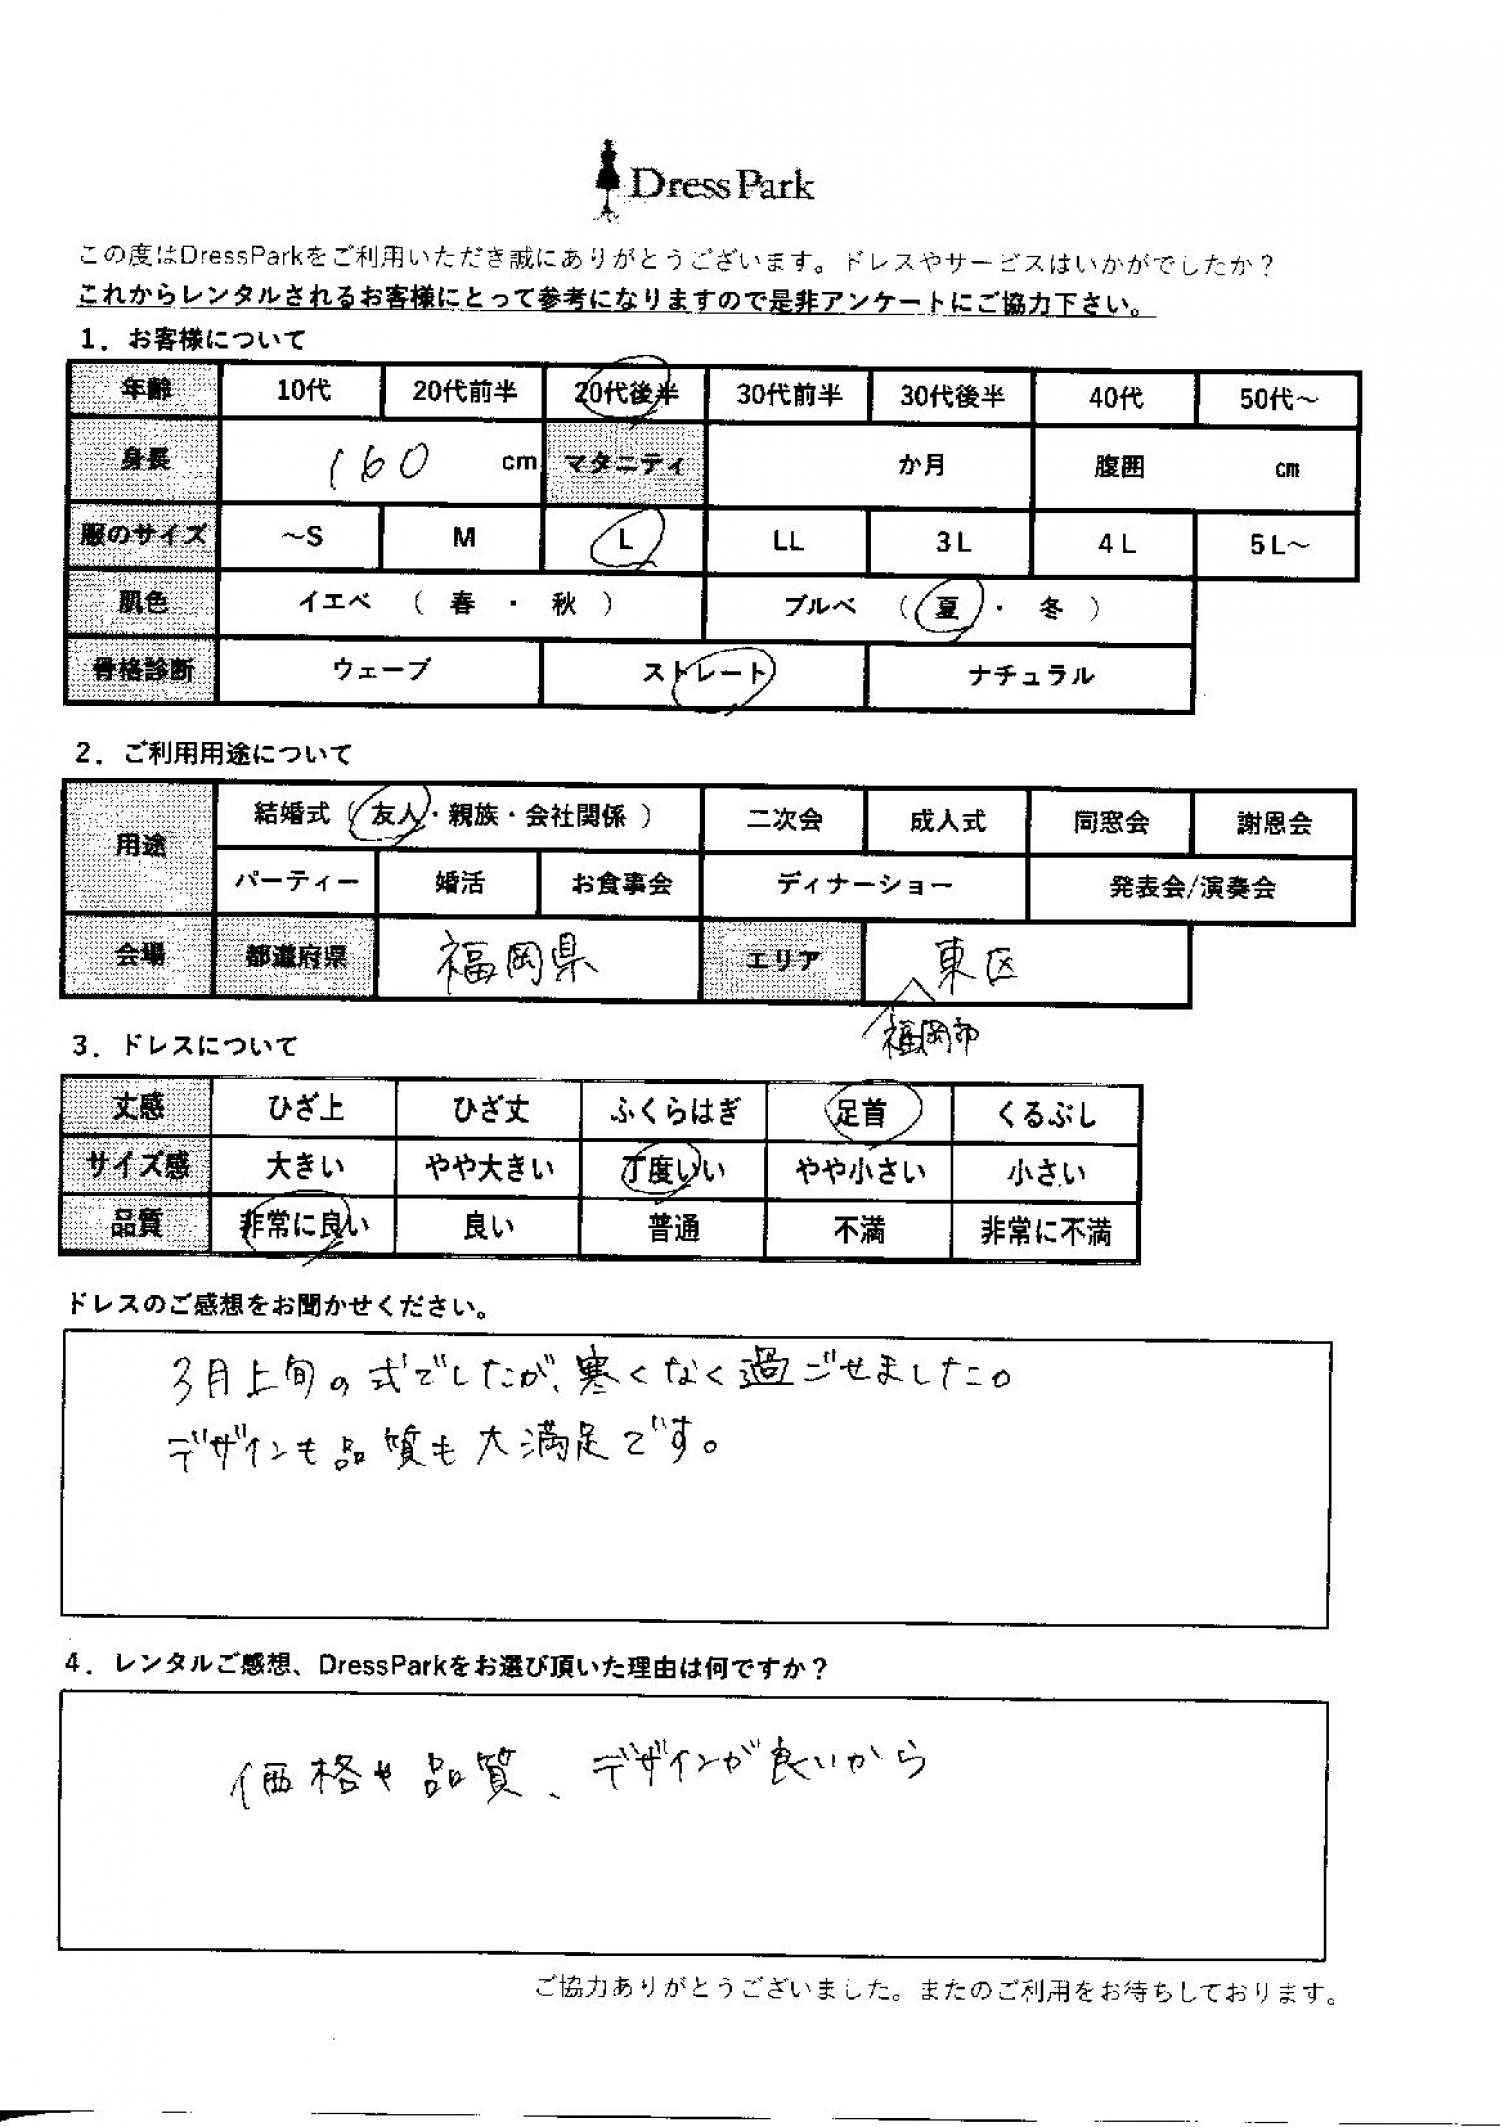 DressPark
この度はDressParkをご利用いただき誠にありがとうございます。ドレスやサービスはいかがでしたか？
これからレンタルされるお客様にとって参考になりますので是非アンケートにご協力下さい。
1．お客様について
年齢 10代 20代前半 20代後半 30代前半 30代後半 40代 50代～
身長 160 cm マタニティ か月 腹囲 cm
服のサイズ ～S M L LL 3L 4L 5L～
肌色 イエベ （ 春 ・ 秋 ） ブルベ （ 夏 ・ 冬 ）
骨格診断 ウェーブ ストレート ナチュラル
2．ご利用用途について
用途 結婚式（ 友人・親族・会社関係 ） 二次会 成人式 同窓会 謝恩会
パーティー 婚活 お食事会 ディナーショー 発表会/演奏会
会場 都道府県 福岡県 エリア 東区
福岡市
3．ドレスについて
丈感 ひざ上 ひざ丈 ふくらはぎ 足首 くるぶし
サイズ感 大きい やや大きい 丁度いい やや小さい 小さい
品質 非常に良い 良い 普通 不満 非常に不満
ドレスのご感想をお聞かせください。
3月上旬の式でしたが、寒くなく過ごせました。
デザインも品質も大満足です。
4．レンタルご感想、DressParkをお選び頂いた理由は何ですか？
価格や品質、デザインが良いから
ご協力ありがとうございました。またのご利用をお待ちしております。